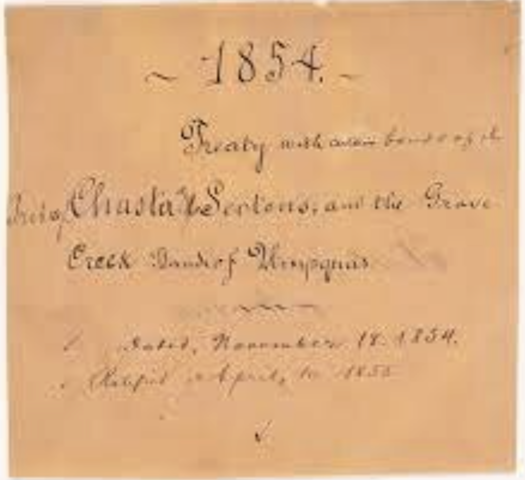 ~ 1854. ~
Treaty with certain bands of the
Chasta & Scotons, and the Grave
Creek Band of Umpquas
Dated, November 18. 1854.
Ratified April, 10 1855